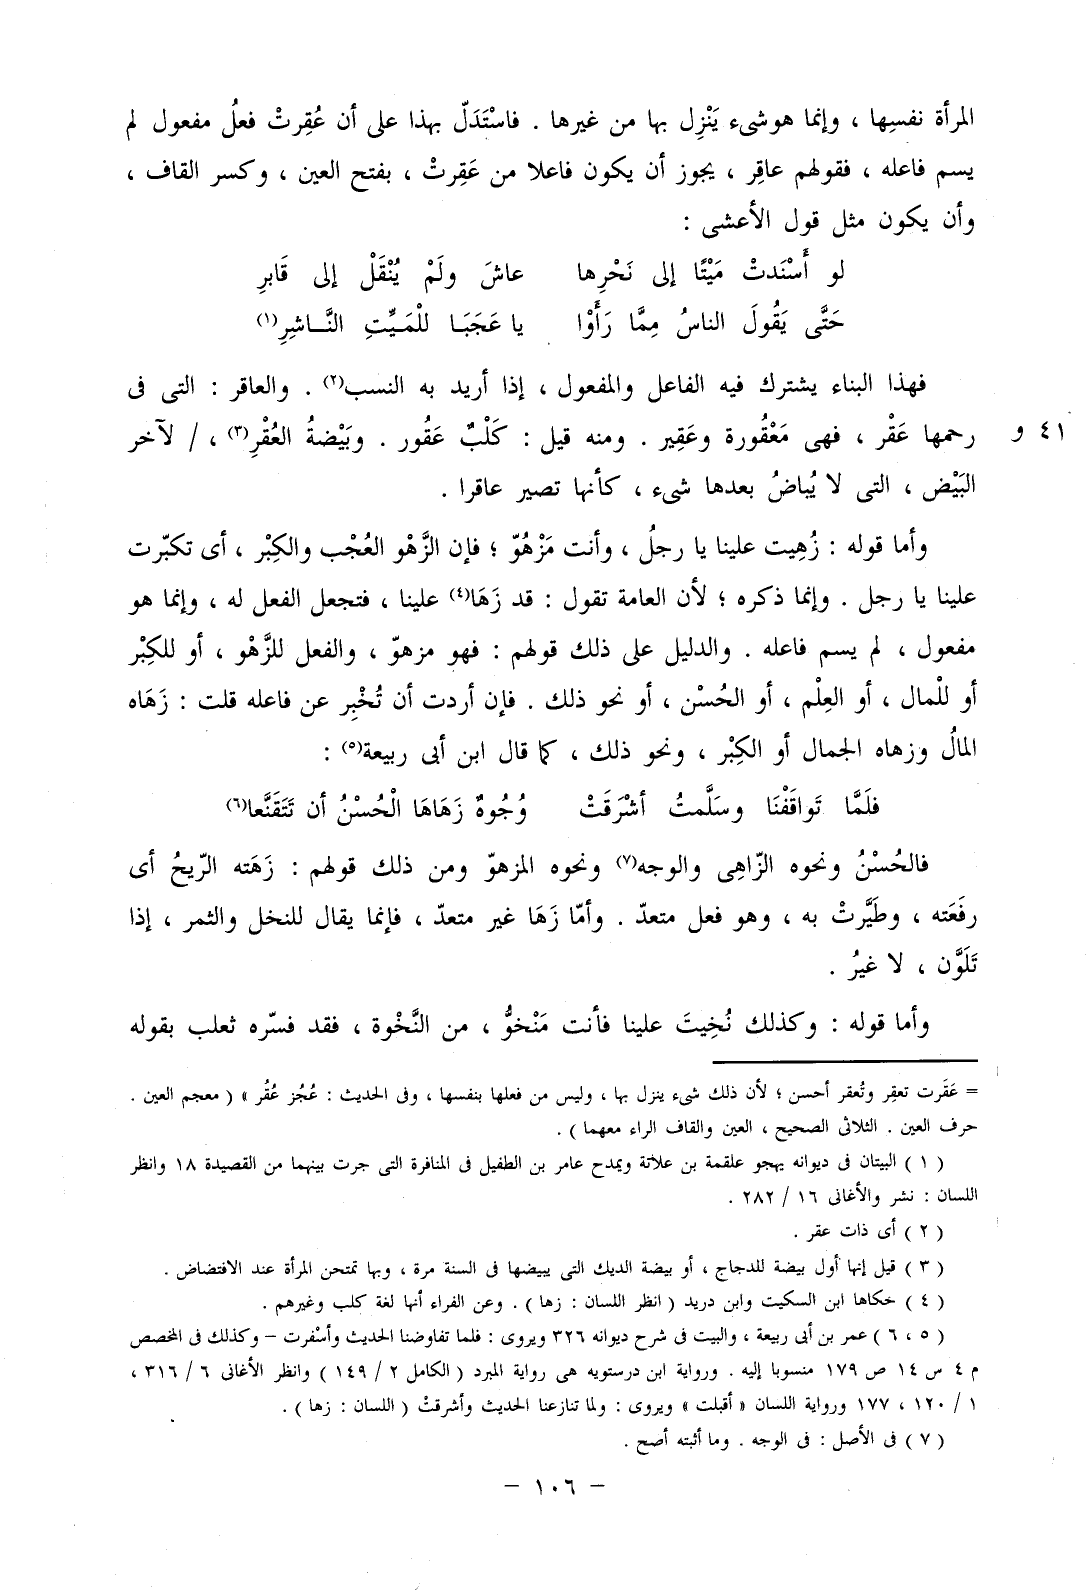 المرأة نفسِها ، وإنما هوشىء يَنْزِل بها من غيرها . فاسْتَدَلّ بهذا على أن عُقِرتْ فعلُ مفعول لم
يسم فاعله ، فقولهم عاقِر ، يجوز أن يكون فاعلا من عَقِرتْ ، بفتح العين ، وكسر القاف ،
وأن يكون مثل قول الأعشى :
لو أَسْنَدتْ مَيْتًا إلى نَحْرِها عاشَ ولَمْ يُنْقَلْ إلى قَابرِ
حَتَّى يَقُولَ الناسُ مِمَّا رَأَوْا يا عَجَبَا للْمَيِّتِ النَّاشِرِ(١)
فهذا البناء يشترك فيه الفاعل والمفعول ، إذا أريد به النسب(٢) . والعاقر : التى فى
رحمها عَقْر ، فهى مَعْقُورة وعَقِير . ومنه قيل : كَلْبٌ عَقُور . وبَيْضةُ العُقْرِ(٣) ، / لآخر ٤١ و
البَيْض ، التى لا يُباضُ بعدها شىء ، كأنها تصير عاقرا .
وأما قوله : زُهِيت علينا يا رجلُ ، وأنت مَزْهُوّ ؛ فإن الزَّهْو العُجْب والكِبْر ، أى تكبّرت
علينا يا رجل . وإنما ذكره ؛ لأن العامة تقول : قد زَهَا(٤) علينا ، فتجعل الفعل له ، وإنما هو
مفعول ، لم يسم فاعله . والدليل على ذلك قولهم : فهو مزهوّ ، والفعل للزَّهْو ، أو للكِبْر
أو للْمال ، أو العِلْم ، أو الحُسْن ، أو نحو ذلك . فإن أردت أن تُخْبِر عن فاعله قلت : زَهَاه
المالُ وزهاه الجمال أو الكِبْر ، ونحو ذلك ، كما قال ابن أبى ربيعة(٥) :
فلَمَّا تَواقَفْنَا وسَلَّمتُ أشْرَقَتْ وُجُوهٌ زَهَاهَا الْحُسْنُ أن تَتَقَنَّعا(٦)
فالحُسْنُ ونحوه الزّاهِى والوجه(٧) ونحوه المزهوّ ومن ذلك قولهم : زَهَته الرّيحُ أى
رفَعَته ، وطَيَّرتْ به ، وهو فعل متعدّ . وأمّا زَهَا غير متعدّ ، فإنما يقال للنخل والثمر ، إذا
تَلَوَّن ، لا غيرُ .
وأما قوله : وكذلك نُخِيتَ علينا فأنت مَنْخوُّ ، من النَّخْوة ، فقد فسّره ثعلب بقوله
= عَقَرت تعقِر وتُعقر أحسن ؛ لأن ذلك شىء ينزل بها ، وليس من فعلها بنفسها ، وفى الحديث : عُجُز عُقُر » ( معجم العين .
حرف العين . الثلاثى الصحيح ، العين والقاف الراء معهما ) .
( ١ ) البيتان فى ديوانه يهجو علقمة بن علاثة ويمدح عامر بن الطفيل فى المنافرة التى جرت بينهما من القصيدة ١٨ وانظر
اللسان : نشر والأغانى ١٦ / ٢٨٢ .
( ٢ ) أى ذات عقر .
( ٣ ) قيل إنها أول بيضة للدجاج ، أو بيضة الديك التى يبيضها فى السنة مرة ، وبها تمتحن المرأة عند الافتضاض .
( ٤ ) حكاها ابن السكيت وابن دريد ( انظر اللسان : زها ) . وعن الفراء أنها لغة كلب وغيرهم .
( ٥ ، ٦ ) عمر بن أبى ربيعة ، والبيت فى شرح ديوانه ٣٢٦ ويروى : فلما تفاوضنا الحديث وأسْفرت – وكذلك فى المخصص
م ٤ س ١٤ ص ١٧٩ منسوبا إليه . ورواية ابن درستويه هى رواية المبرد ( الكامل ٢ / ١٤٩ ) وانظر الأغانى ٦ / ٣١٦ ،
١ / ١٢٠ ، ١٧٧ ورواية اللسان « أقبلت » ويروى : ولما تنازعنا الحديث وأشرقتْ ( اللسان : زها ) .
( ٧ ) فى الأصل : فى الوجه . وما أثبته أصح .
– ١٠٦ –